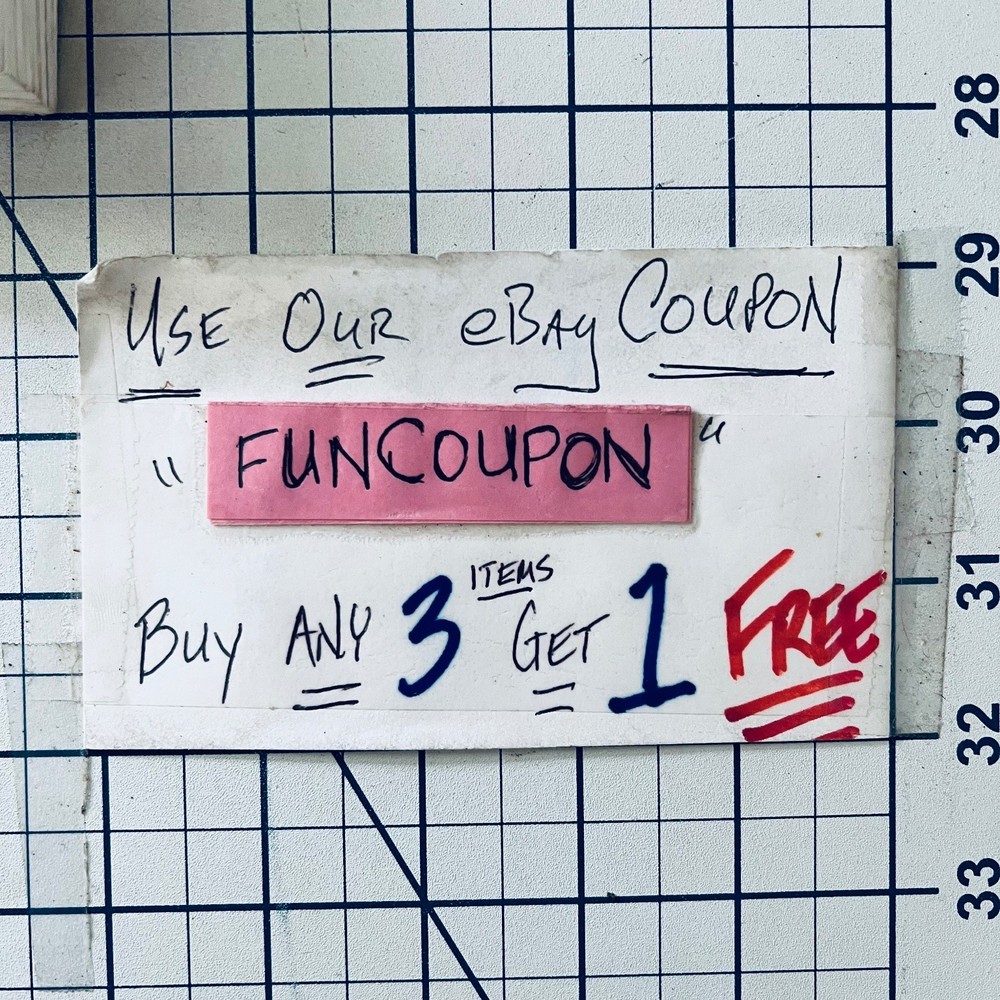 USE OUR eBAY COUPON
"FUNCOUPON"
BUY ANY 3 ITEMS GET 1 FREE
28
29
30
31
32
33